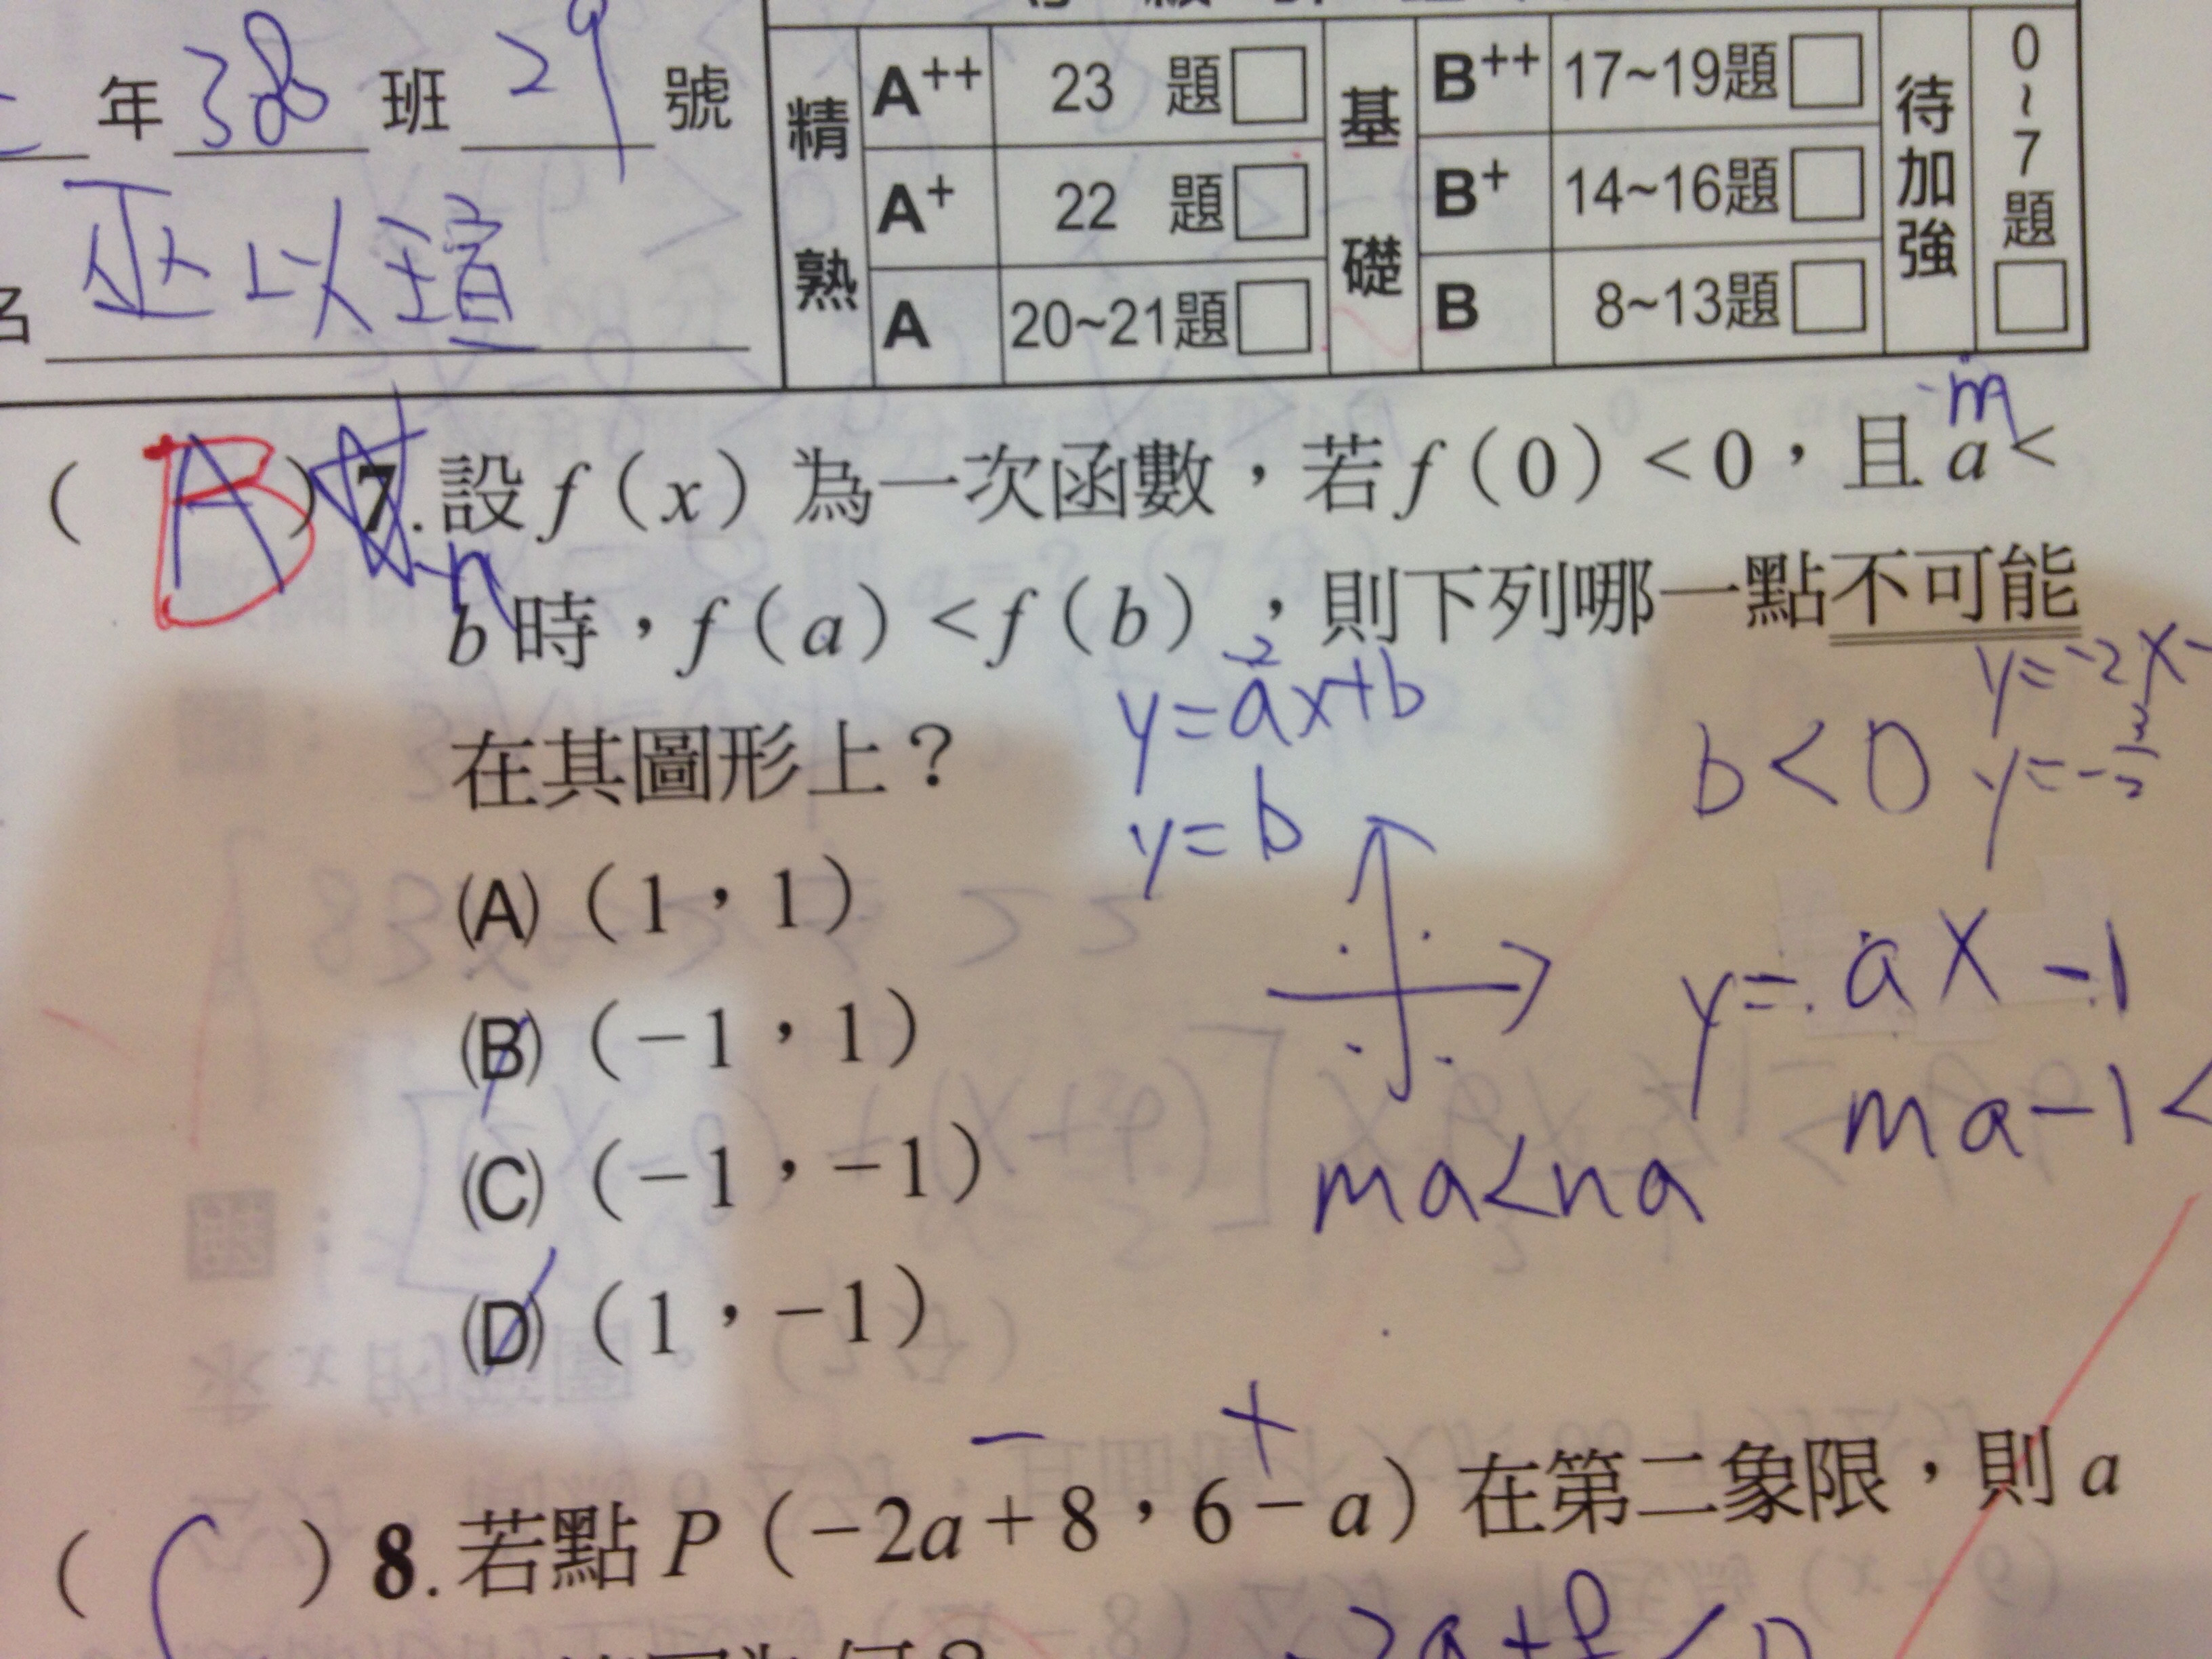 年 38 班 29 號
名 巫以瑄
精熟 A++ 23 題 □ 基礎 B++ 17~19題 □ 待加強 0~7題 □
A+ 22 題 □ B+ 14~16題 □
A 20~21題 □ B 8~13題 □
m
( A B ) 7. 設 f(x) 為一次函數，若 f(0)<0，且 a<
-n
b 時，f(a)<f(b)，則下列哪一點不可能
在其圖形上？
-2
y=ax+b
y=b
b<0
y=-2x-
y=-
(A) (1，1)
(B) (-1，1)
(C) (-1，-1)
(D) (1，-1)
y=ax-1
ma-1<
ma<na
- +
( C ) 8. 若點 P (-2a+8，6-a) 在第二象限，則 a
-2a+8<0